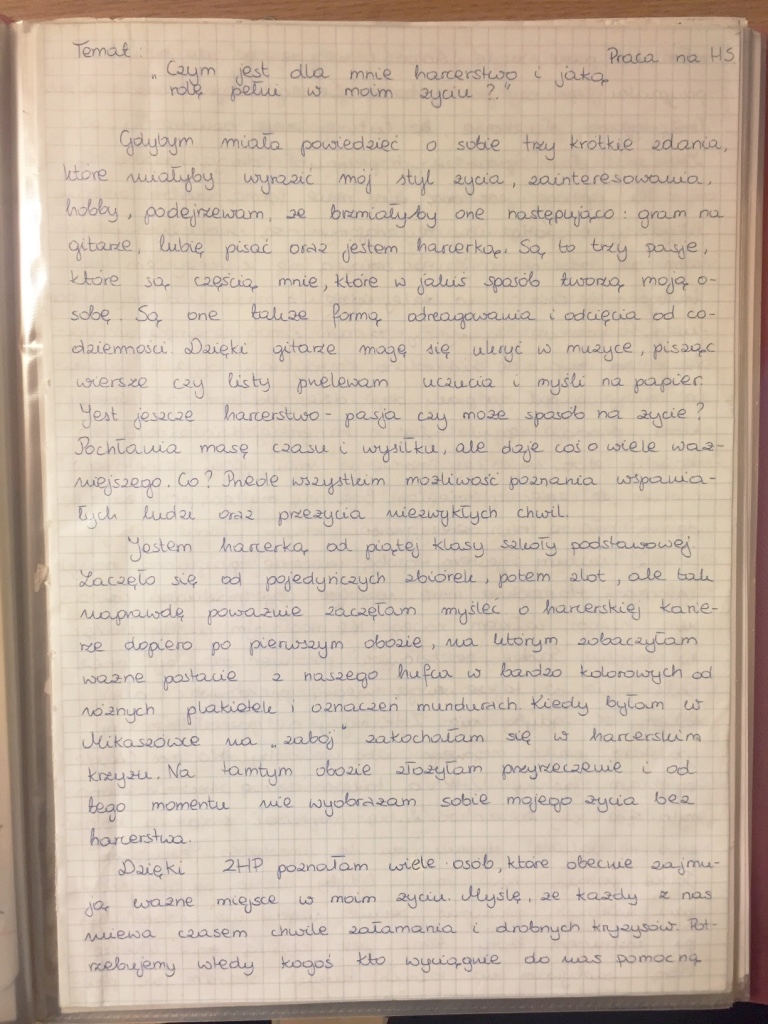 Temat: Praca na HS
"Czym jest dla mnie harcerstwo i jaką
rolę pełni w moim życiu?"
Gdybym miała powiedzieć o sobie trzy krótkie zdania,
które miałyby wyrazić mój styl życia, zainteresowania,
hobby, podejrzewam, że brzmiałyby one następująco: gram na
gitarze, lubię pisać oraz jestem harcerką. Są to trzy pasje,
które są częścią mnie, które w jakiś sposób tworzą moją o-
sobę. Są one także formą odreagowania i odcięcia od co-
dzienności. Dzięki gitarze mogę się ukryć w muzyce, pisząc
wiersze czy listy przelewam uczucia i myśli na papier.
Jest jeszcze harcerstwo - pasja czy może sposób na życie?
Pochłania masę czasu i wysiłku, ale daje coś o wiele waż-
niejszego. Co? Przede wszystkim możliwość poznania wspania-
łych ludzi oraz przeżycia niezwykłych chwil.
Jestem harcerką od piątej klasy szkoły podstawowej.
Zaczęło się od pojedyńczych zbiórek, potem zlot, ale tak
naprawdę poważnie zaczęłam myśleć o harcerskiej karie-
rze dopiero po pierwszym obozie, na którym zobaczyłam
ważne postacie z naszego hufca w bardzo kolorowych od
różnych plakietek i oznaczeń mundurach. Kiedy byłam w
Mikaszówce na "zabój" zakochałam się w harcerskim
krzyżu. Na tamtym obozie złożyłam przyrzeczenie i od
tego momentu nie wyobrażam sobie mojego życia bez
harcerstwa.
Dzięki ZHP poznałam wiele osób, które obecnie zajmu-
ją ważne miejsce w moim życiu. Myślę, że każdy z nas
miewa czasem chwile załamania i drobnych kryzysów. Pot-
rzebujemy wtedy kogoś kto wyciągnie do nas pomocną